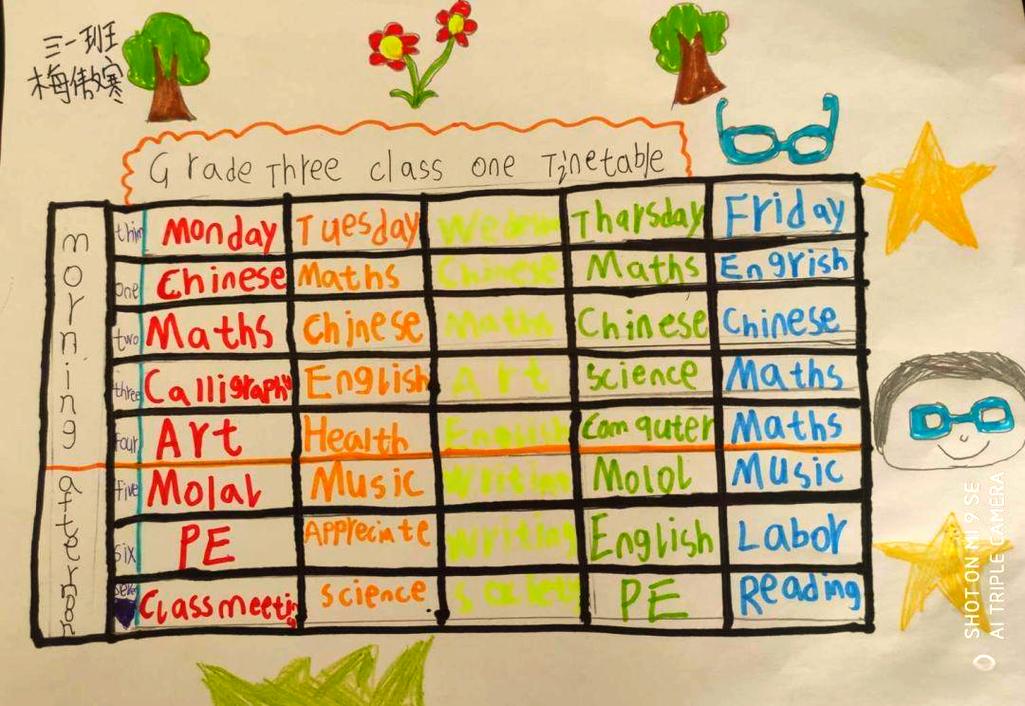 三一班
梅傲寒
Grade Three class one Tinetable
morning
Monday Tuesday Tharsday Friday
one Chinese Maths Chinese Maths Engrish
two Maths Chinese Maths Chinese Chinese
three Calligraphy English Art science Maths
four Art Health English Comquter Maths
afternoon
five Molal Music Writing Molol Music
six PE Appreciate Writing English Labor
Class meeting science PE Reading
SHOT ON MI 9 SE
AI TRIPLE CAMERA